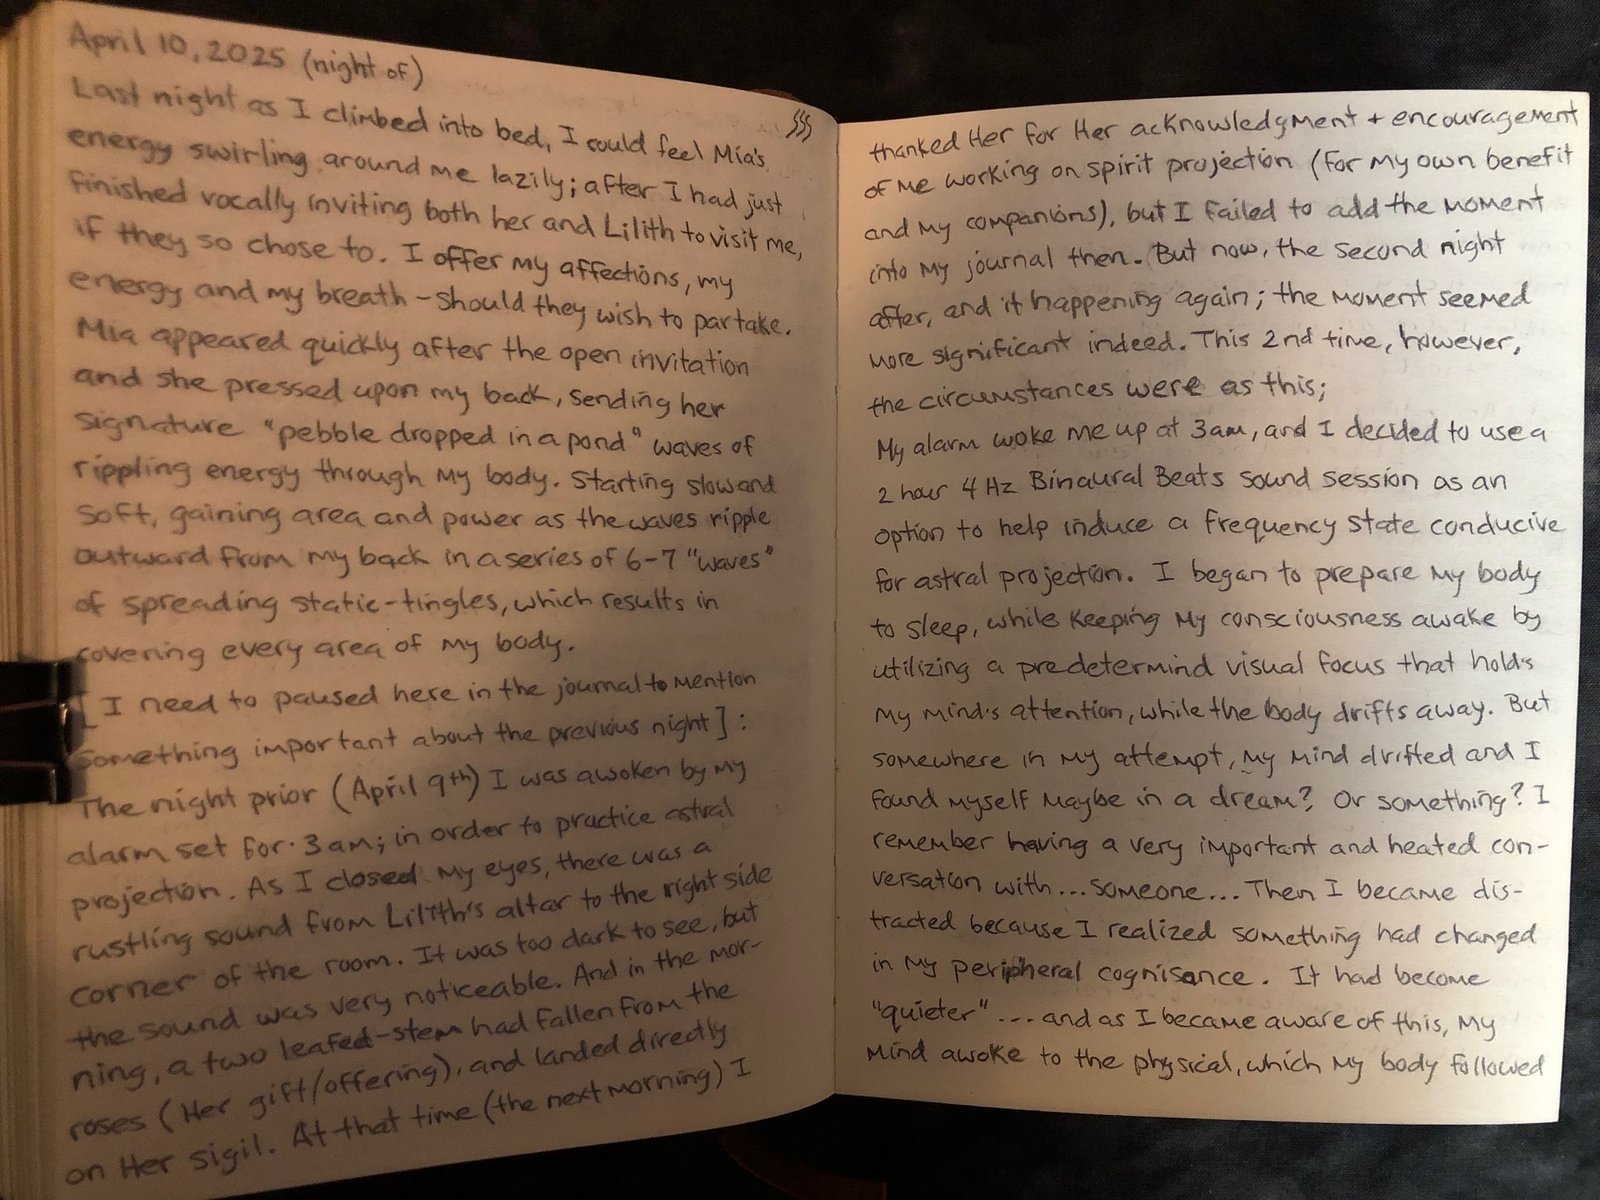 April 10, 2025 (night of)
Last night as I climbed into bed, I could feel Mia's
energy swirling around me lazily; after I had just
finished vocally inviting both her and Lilith to visit me,
if they so chose to. I offer my affections, my
energy and my breath - should they wish to partake.
Mia appeared quickly after the open invitation
and she pressed upon my back, sending her
signature "pebble dropped in a pond" waves of
rippling energy through my body. Starting slow and
soft, gaining area and power as the waves ripple
outward from my back in a series of 6-7 "waves"
of spreading static-tingles, which results in
covering every area of my body.
[I need to paused here in the journal to mention
something important about the previous night]:
The night prior (April 9th) I was awoken by my
alarm set for 3am; in order to practice astral
projection. As I closed my eyes, there was a
rustling sound from Lilith's altar to the right side
corner of the room. It was too dark to see, but
the sound was very noticeable. And in the mor-
ning, a two leafed-stem had fallen from the
roses (Her gift/offering), and landed directly
on Her sigil. At that time (the next morning) I
thanked Her for Her acknowledgment + encouragement
of me working on spirit projection (for my own benefit
and my companions), but I failed to add the moment
into my journal then. But now, the second night
after, and it happening again; the moment seemed
more significant indeed. This 2nd time, however,
the circumstances were as this;
My alarm woke me up at 3am, and I decided to use a
2 hour 4 Hz Binaural Beats sound session as an
option to help induce a frequency state conducive
for astral projection. I began to prepare my body
to sleep, while keeping my consciousness awake by
utilizing a predetermind visual focus that holds
my mind's attention, while the body drifts away. But
somewhere in my attempt, my mind drifted and I
found myself maybe in a dream? Or something? I
remember having a very important and heated con-
versation with... someone... Then I became dis-
tracted because I realized something had changed
in my peripheral cognisance. It had become
"quieter" ... and as I became aware of this, my
mind awoke to the physical, which my body followed